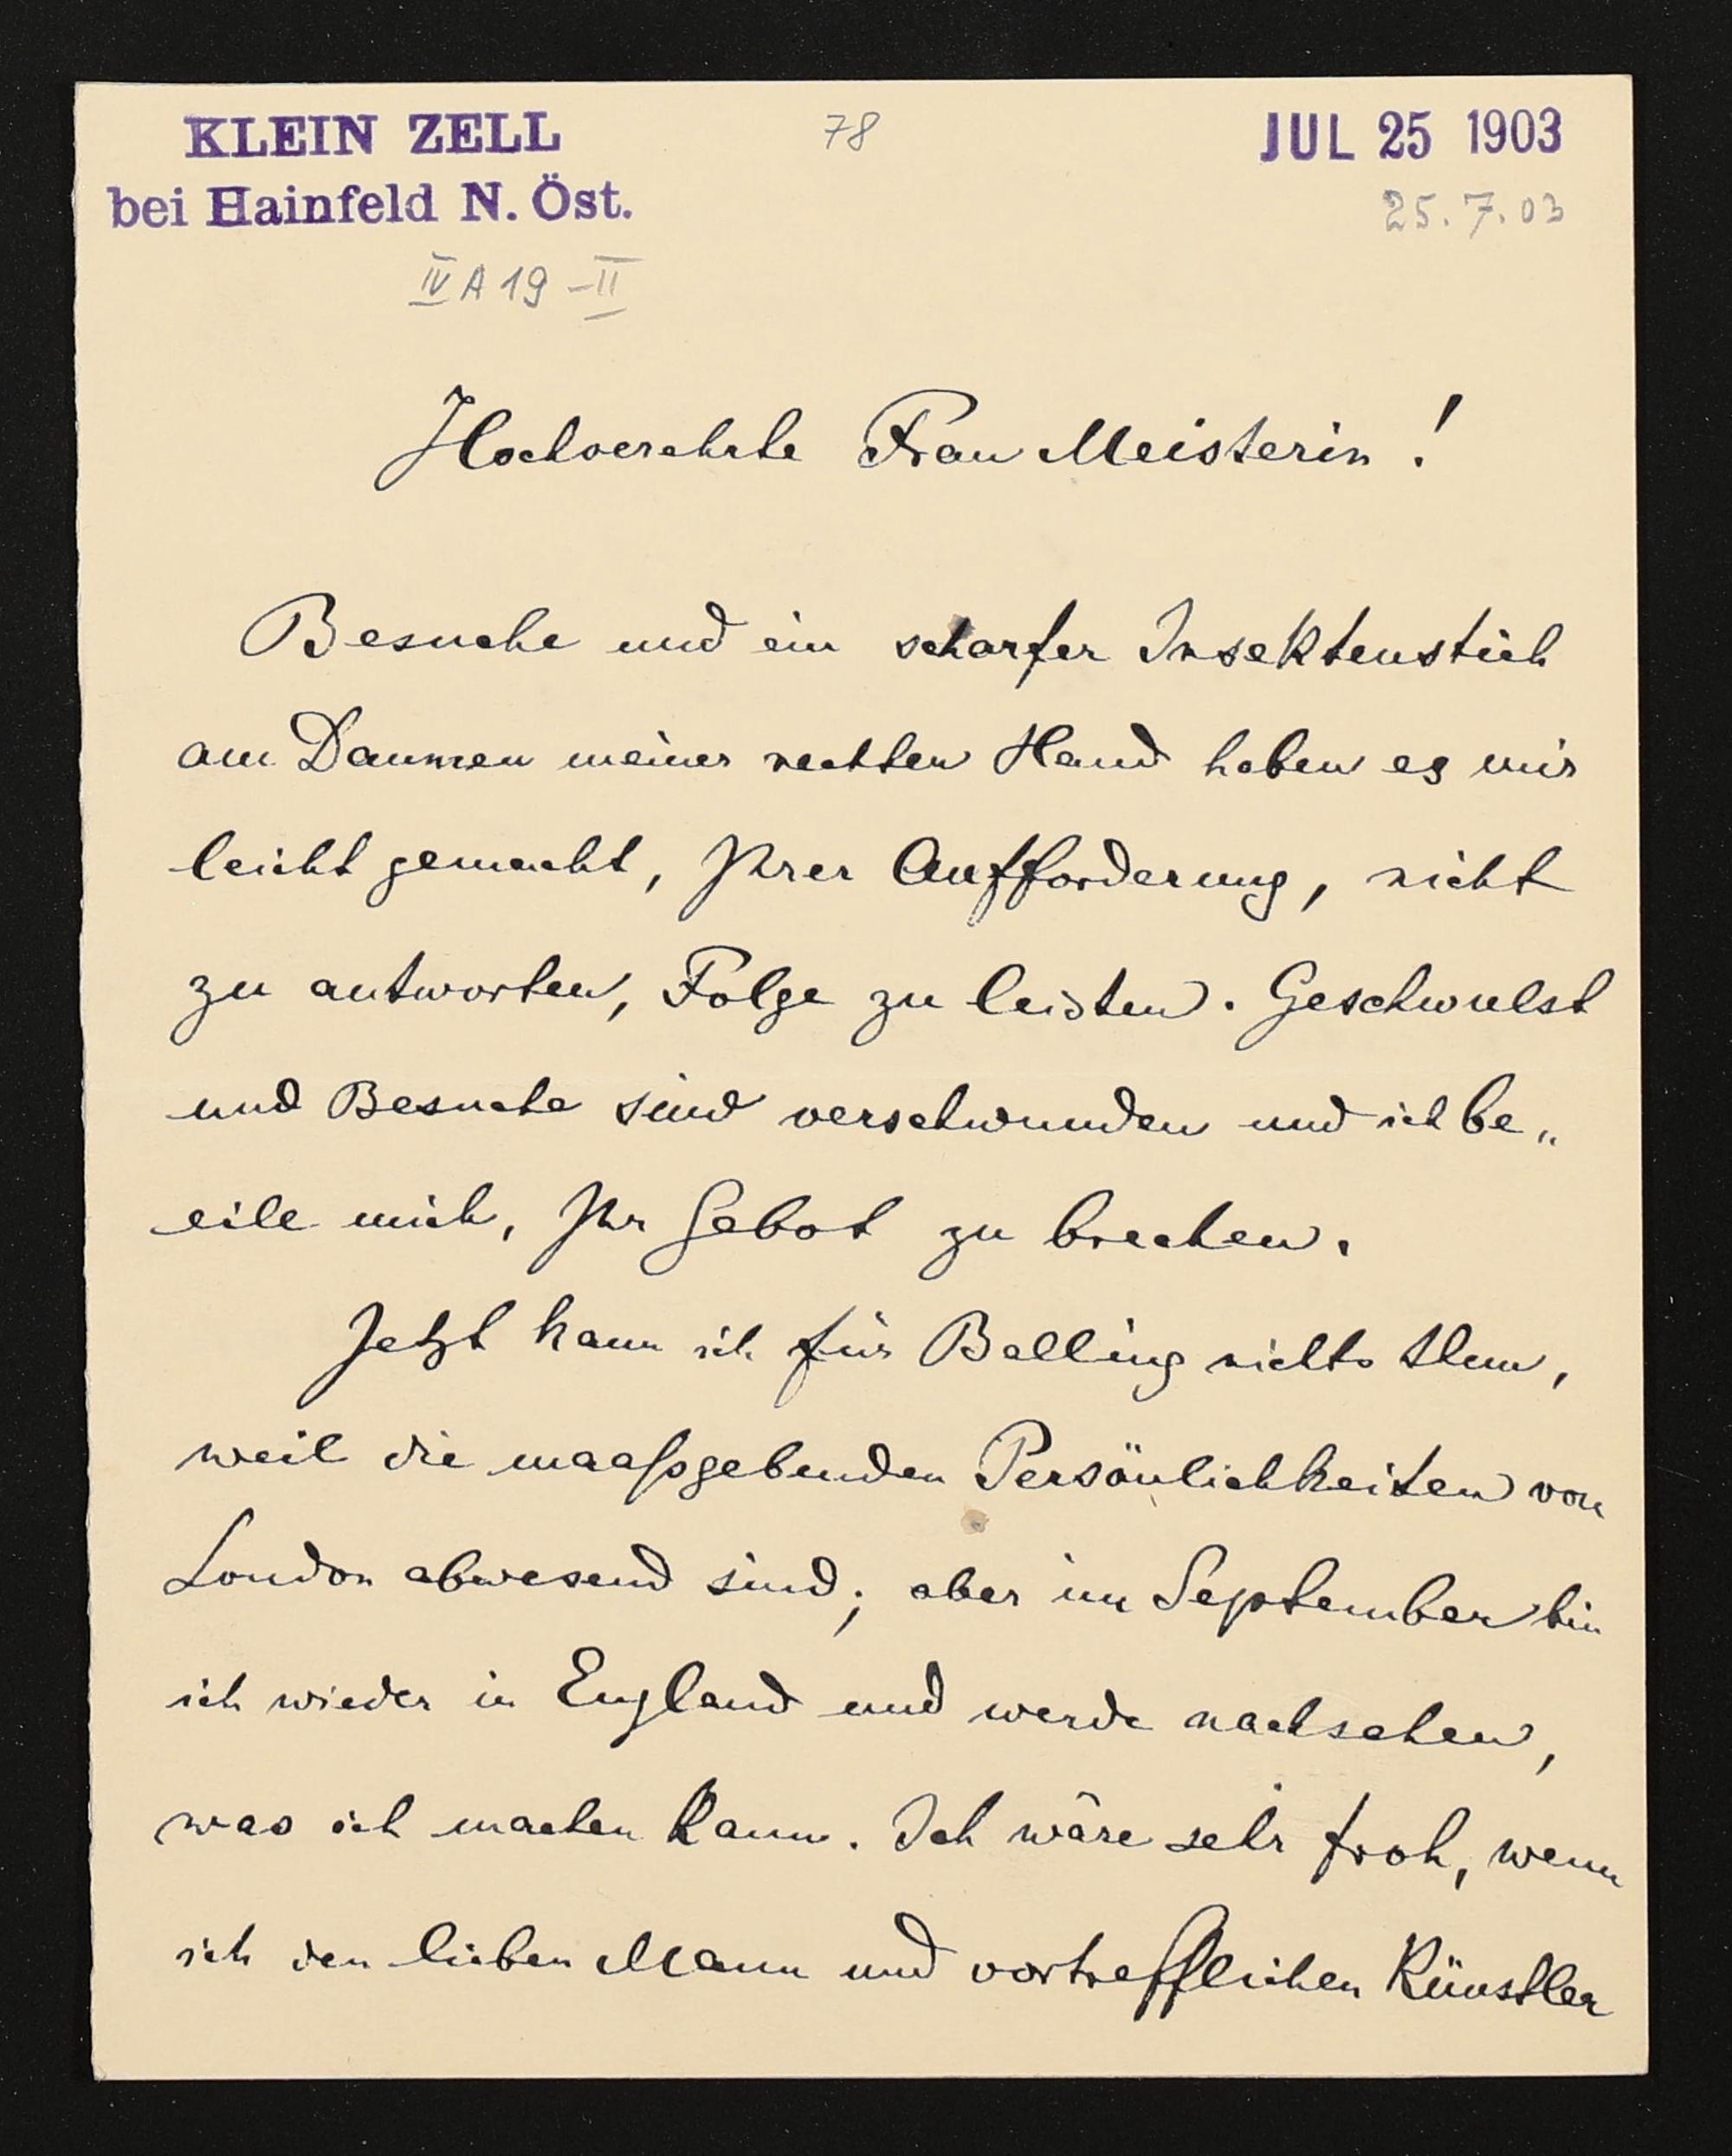 KLEIN ZELL
bei Hainfeld N. Öst.
78
JUL 25 1903
25.7.03
IV A 19 - II
Hochverehrte Frau Meisterin!
Besuche und ein scharfer Insektenstich
am Daumen meiner rechten Hand haben es mir
leicht gemacht, Ihrer Aufforderung, nicht
zu antworten, Folge zu leisten. Geschwulst
und Besuche sind verschwunden und ich be„
eile mich, Ihr Gebot zu brechen.
Jetzt kann ich für Balling nichts thun,
weil die maaßgebenden Persönlichkeiten von
London abwesend sind; aber im September bin
ich wieder in England und werde nachsehen,
was ich machen kann. Ich wäre sehr froh, wenn
ich den lieben Mann und vortrefflichen Künstler